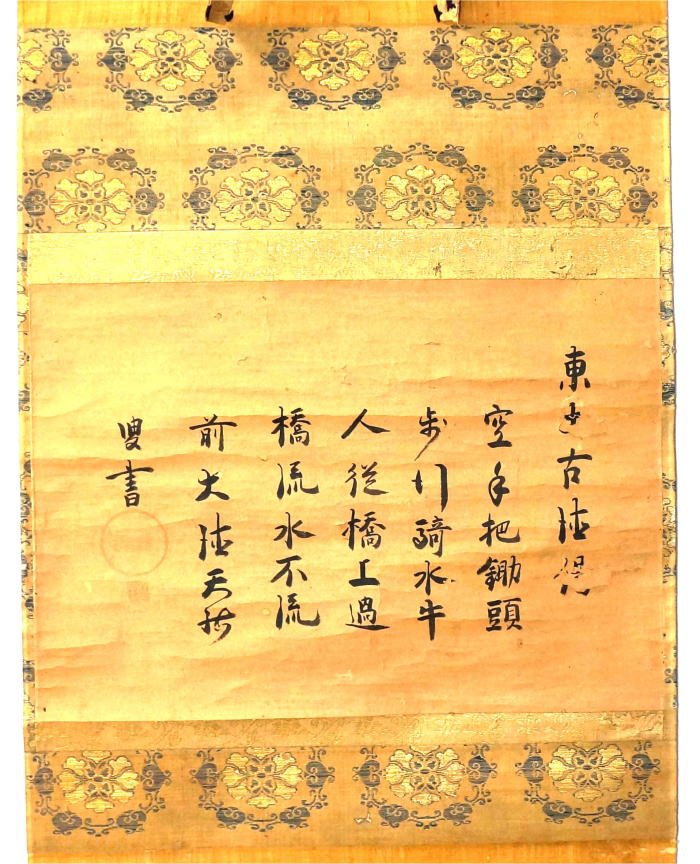 東古徳偈
空手把鋤頭
歩行騎水牛
人從橋上過
橋流水不流
前大徳天祐
叟書